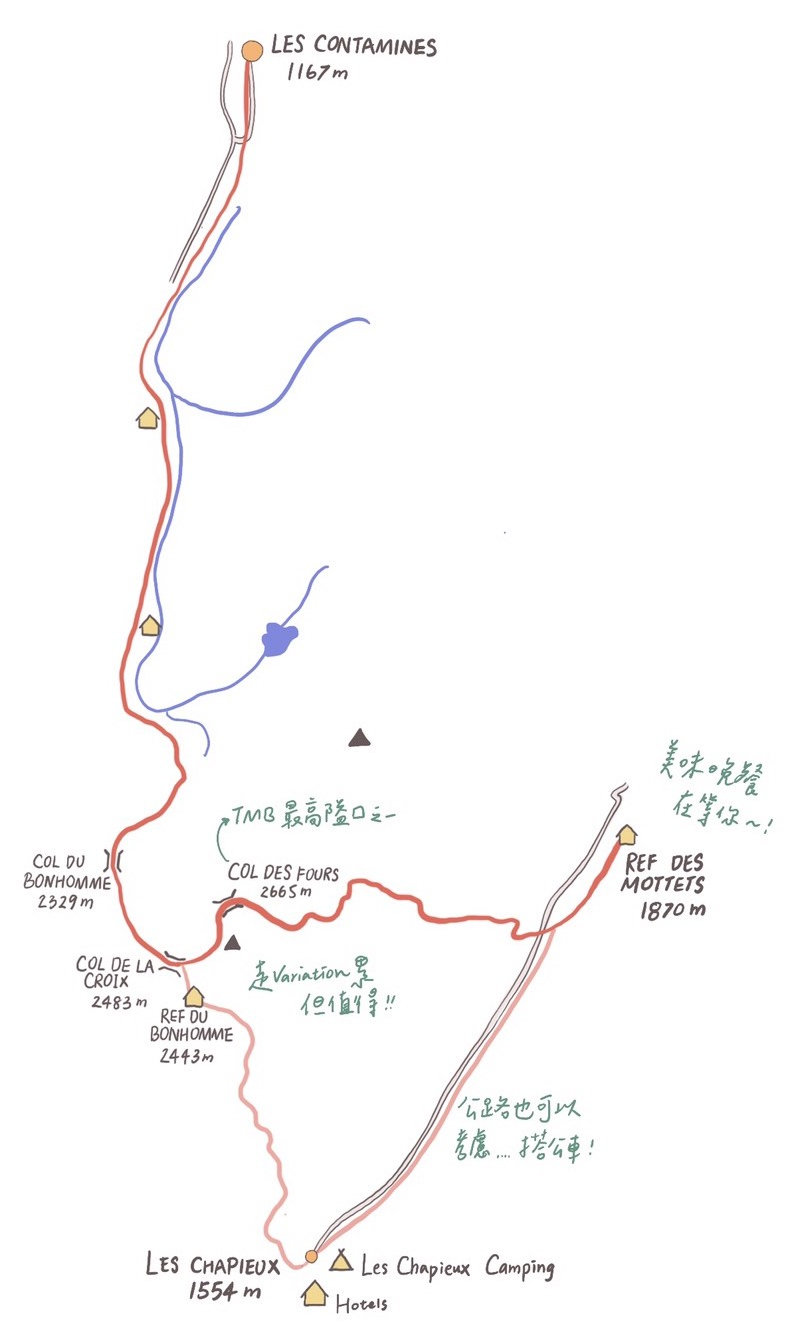 LES CONTAMINES
1167m
美味晚餐
在等你~!
TMB 最高隘口之一
COL DU
BONHOMME
2329m
COL DES FOURS
2665m
REF DES
MOTTETS
1870m
COL DE LA
CROIX
2483m
走Variation累
但值得!!
REF DU
BONHOMME
2443m
公路也可以
考慮....搭公車!
LES CHAPIEUX
1554m
Les Chapieux Camping
Hotels